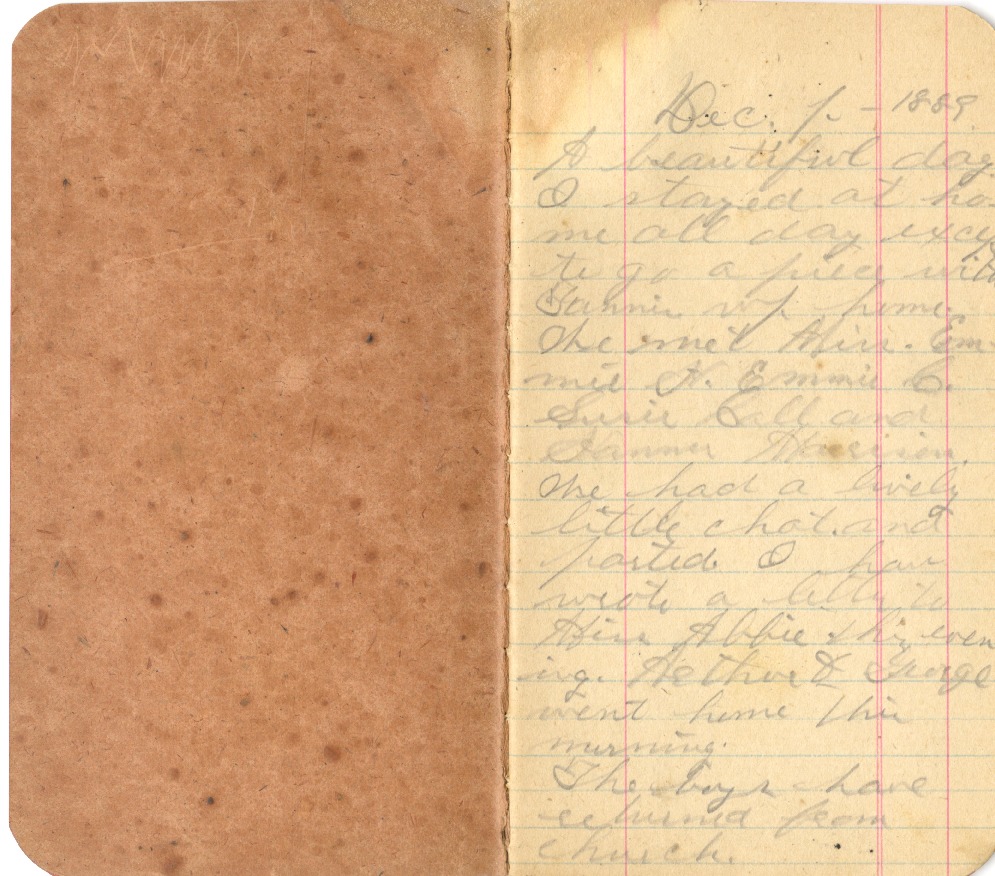 Dec. 1. - 1889
A beautiful day
I stayed at ho-
me all day excep
to go a piece with
Fannie up home.
We met Miss. Em-
mie H. Emmie C.
Susie Ball and
Fannie Harrison.
We had a lively
little chat. and
parted. I have
wrote a letter to
Miss Abbie this even
ing. Arthur & George
went home this
morning.
The boys have
returned from
church.